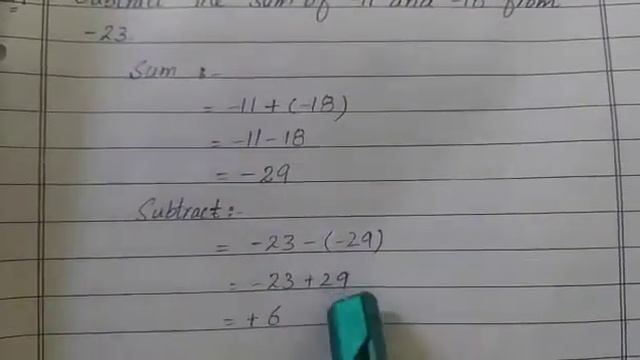 Subtract the sum of -11 and -18 from
-23
Sum :-
= -11 + (-18)
= -11 - 18
= -29
Subtract:-
= -23 - (-29)
= -23 + 29
= + 6